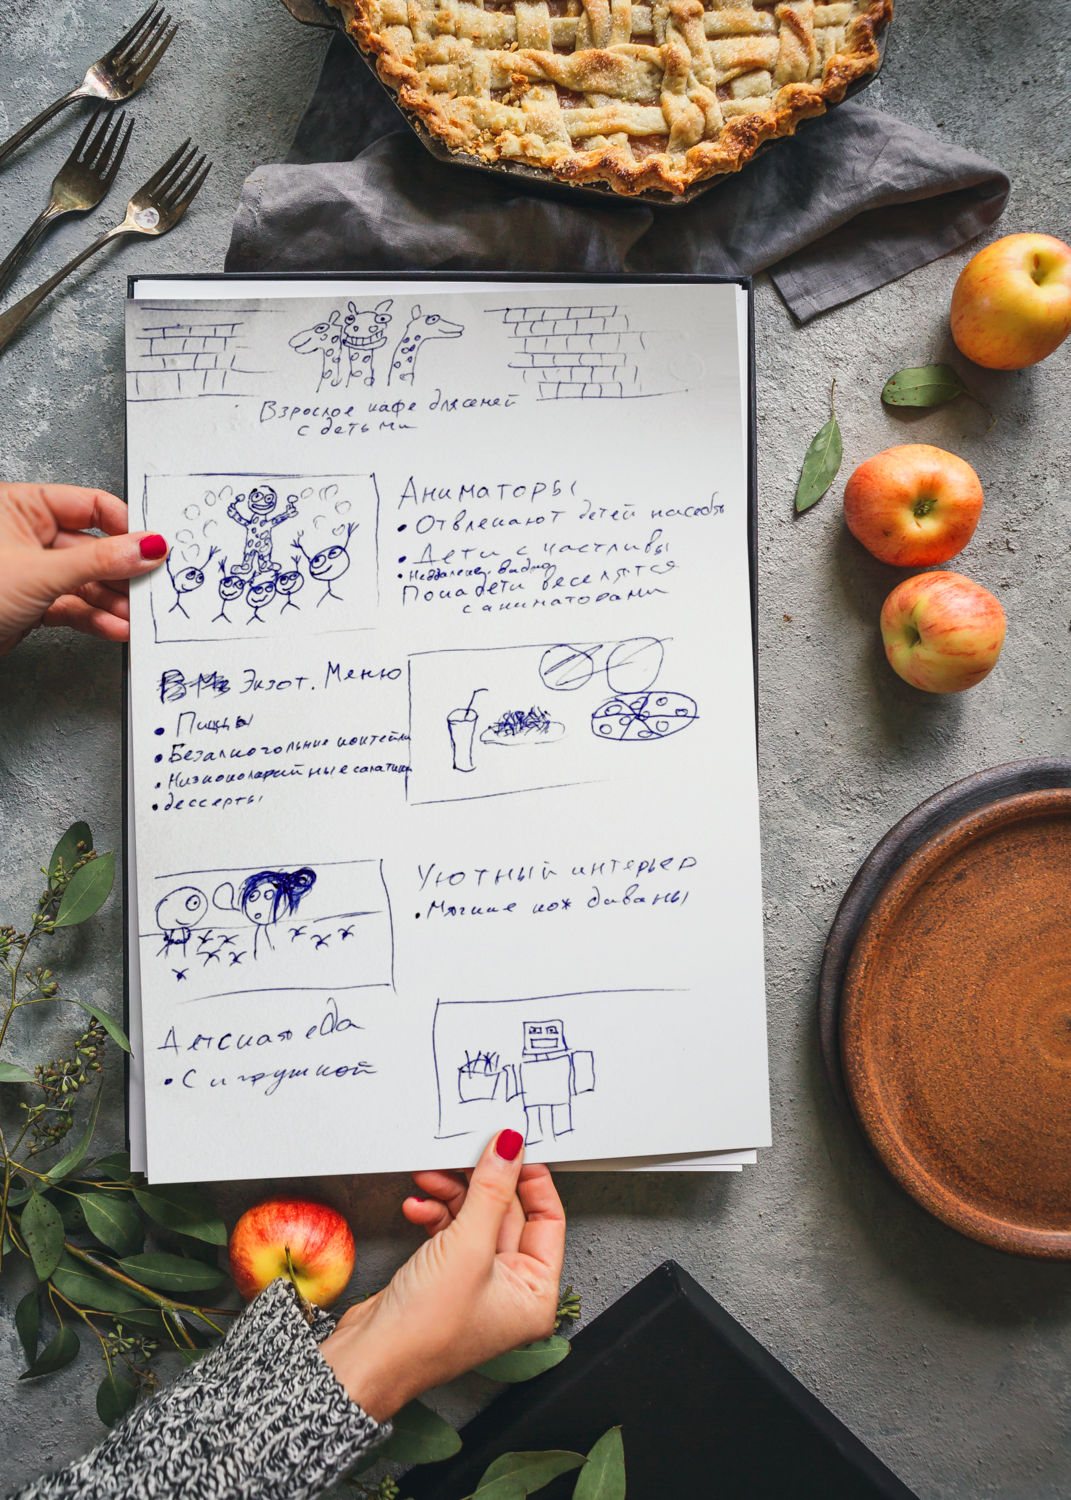 Взрослое кафе для семей
с детьми
Аниматоры
• Отвлекают детей на себя
• Дети счастливы
Пока дети веселятся
с аниматорами
Экзот. Меню
• Пиццы
• Безалкогольные коктейли
• Низкокаларийтные салатики
• десерты
Уютный интерьер
• Мягкие кож диваны
Детская еда
• С игрушкой